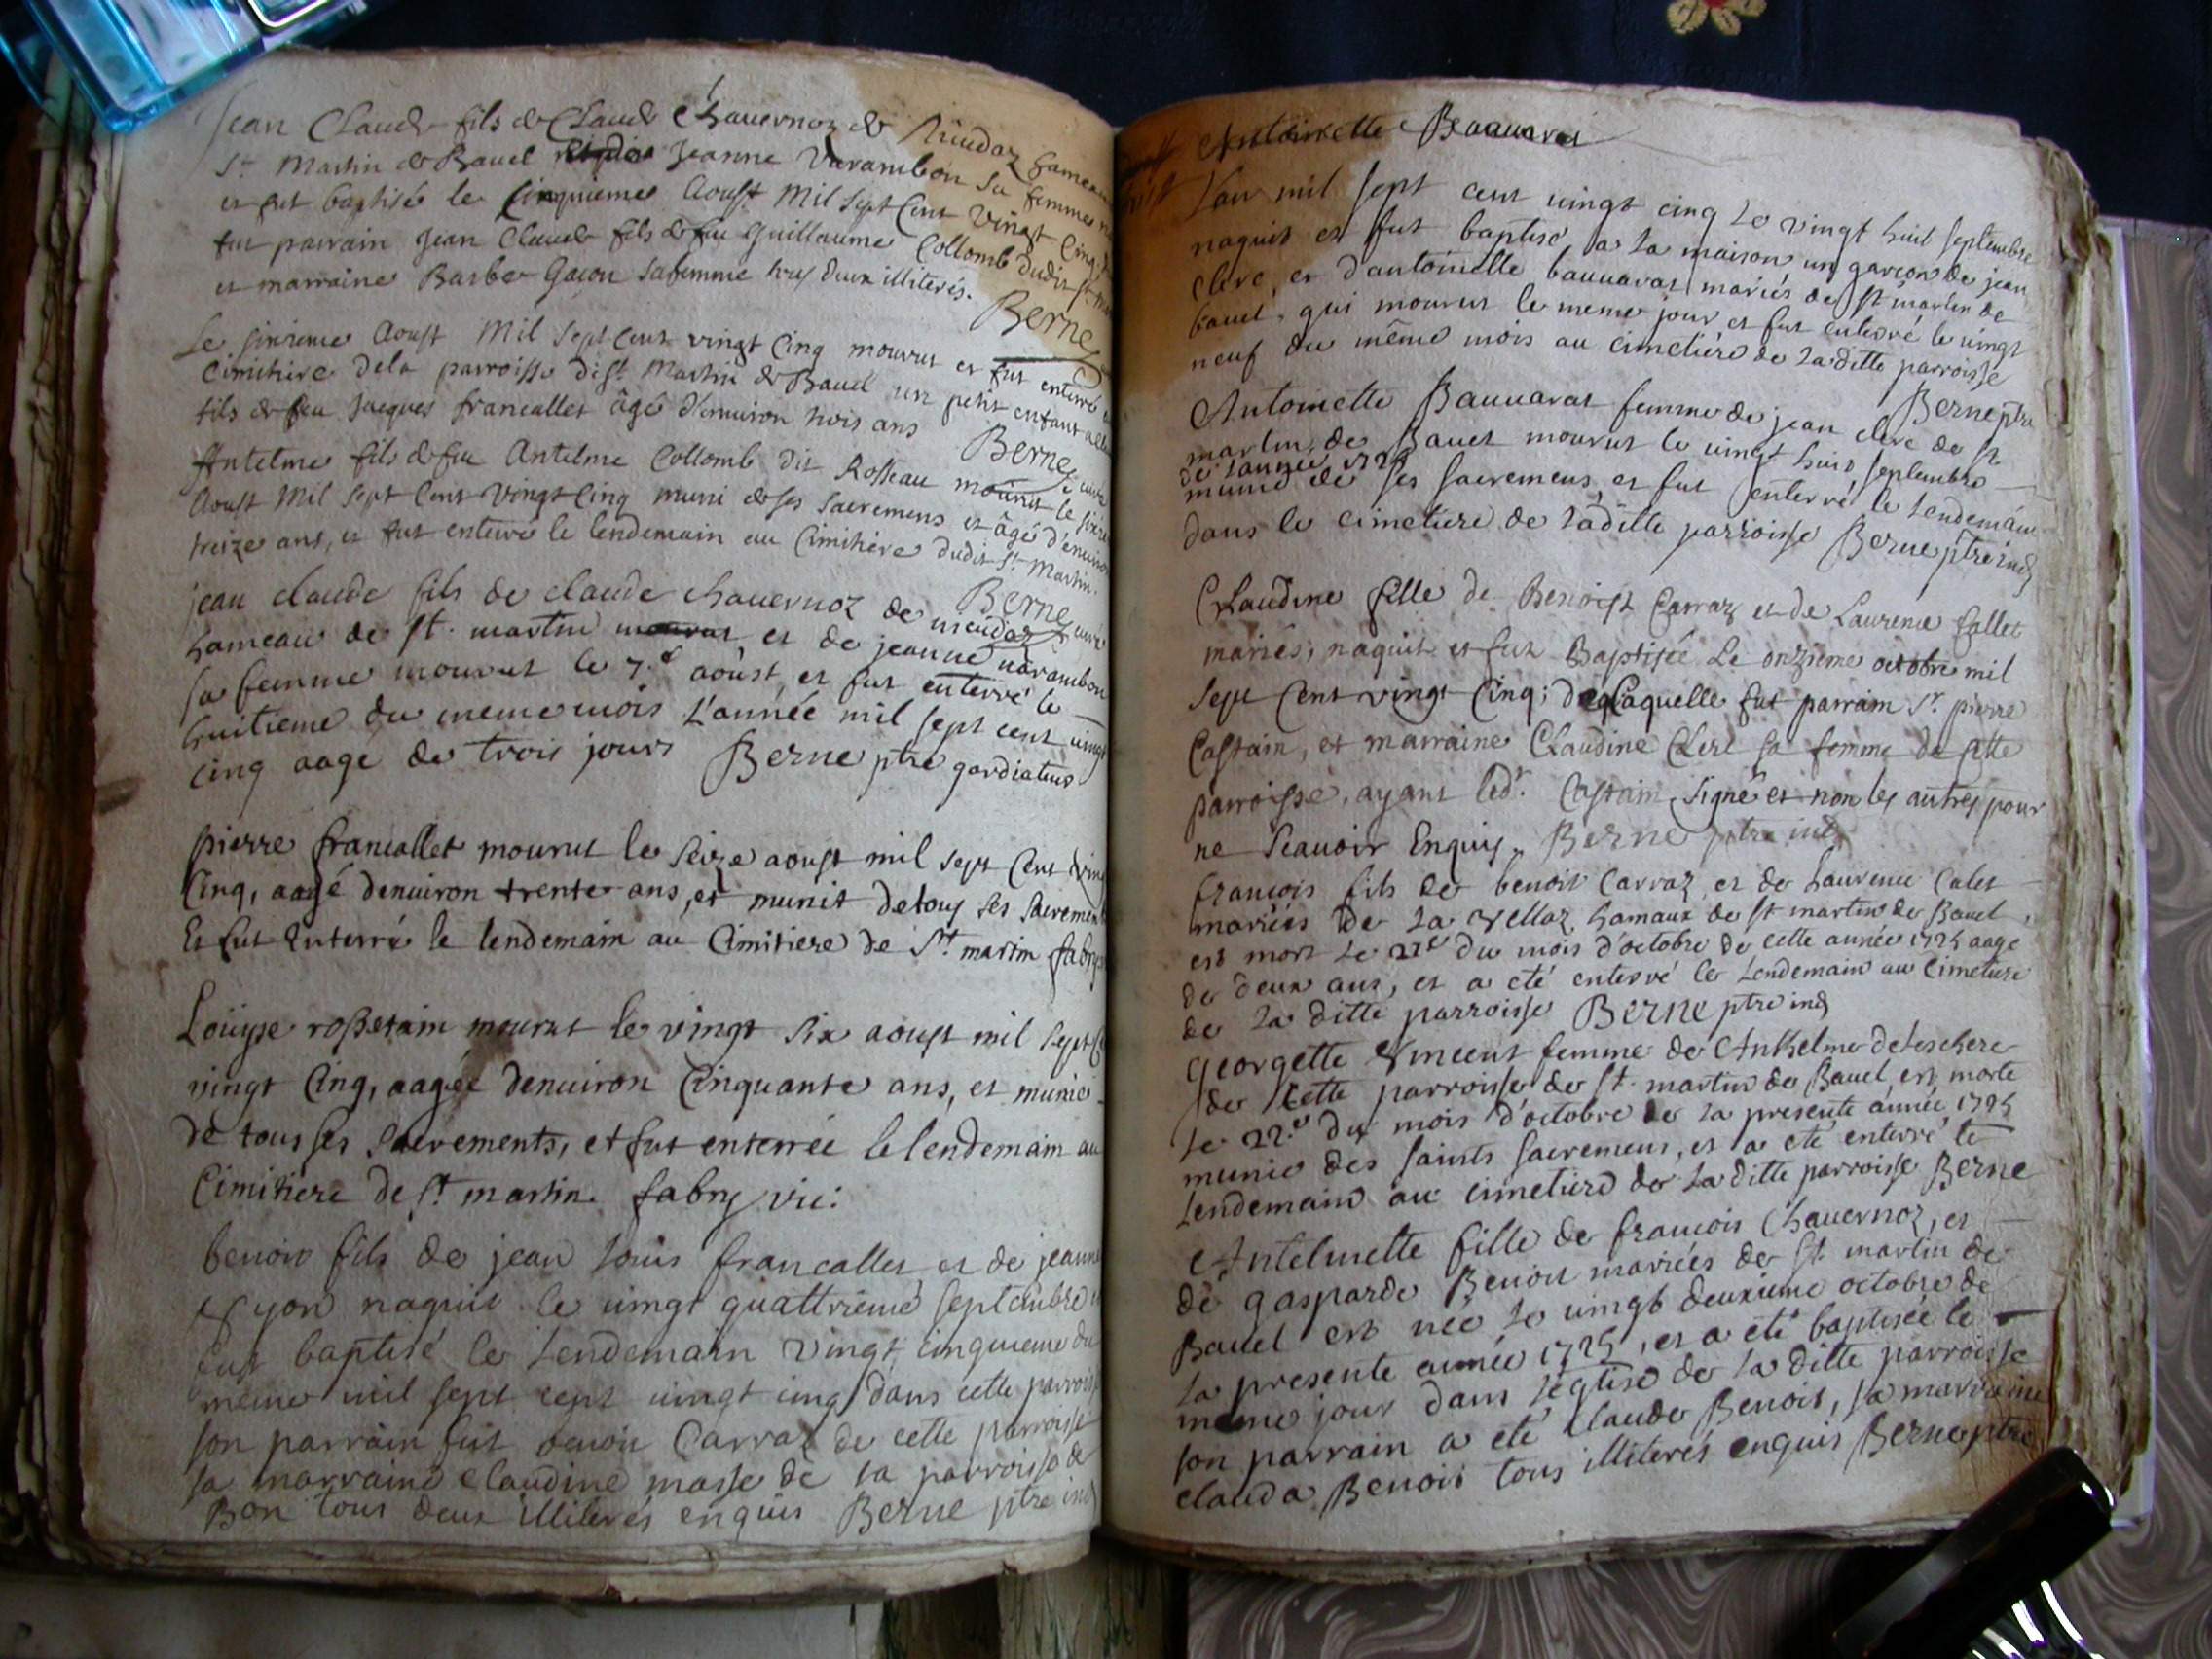 Jean Claude fils de Claude Chavernoz de
St Martin de Bavel Jeanne Varambon sa femme
et fut baptisé le cinquieme Aoust Mil Sept Cent Vingt Cinq
fut parrain Jean Claude fils de feu Guillaume Collomb dudit St
et marraine Barbe Gacon sa femme tous deux illiterés.
Berne
Le sixieme Aoust Mil Sept Cent vingt Cinq mourut et fut enterré
Cimitiere dela parroisse de St Martin de Bavel un petit enfant
fils de feu Jacques francallet âgé d'environ trois ans
Berne
Antelme fils de feu Antelme Collomb dit Rosseau mourut le
Aoust Mil Sept Cent Vingt Cinq muni de ses Sacremens et âgé d'environ
treize ans, et fut enterré le lendemain au Cimitiere dudit St Martin.
Berne curé
jean claude fils de claude chavernoz de
hameau de st. martin mourut et de jeanne varambon
sa femme mourut le 7.e aoust et fut enterré le
huitieme du meme mois L'année mil sept cent vingt
cinq aagé de trois jours Berne ptre gardiateur
pierre francallet mourut le seize aoust mil sept Cent
Cinq, aagé denviron trente ans, et munit de tous ses Sacrements
Et fut Enterré le lendemain au Cimitiere de St. martin fabry
Louyse rosseram mourut le vingt six aoust mil sept
vingt Cinq, aagée denviron Cinquante ans, et munie
de tous ses Sacrements, et fut enterrée le lendemain au
Cimitiere de st. martin. fabry vic:
benoit fils de jean Louis francallet et de jeanne
naquit le vingt quattrieme septembre
fut baptisé le Lendemain vingt cinquieme du
meme mil sept cent vingt cinq dans cette parroisse
son parrain fut benoit Carraz de cette parroisse
sa marraine claudine masse de la parroisse de
Bon tous deux illiterés enquis Berne ptre ind
Antoinette Bauuarat
L'an mil sept cent vingt cinq le vingt huit septembre
naquit et fut baptisé a la maison un garcon de jean
clerc, et d'antoinette bauuarat mariés de st martin de
bavel, qui mourut le meme jour et fut enterré le vingt
neuf du même mois au cimetiére de la ditte parroisse
Berne ptre
Antoinette Bauuarat femme de jean clerc de st
martin de Bavel mourut le vingt huit septembre
de l'année
munie de ses sacremens, et fut enterré le Lendemain
dans le cimetiére de la ditte parroisse Berne ptre ind
Claudine fille de Benoist Carraz et de Laurence Callet
mariés; naquit et fut Baptisée Le onzieme octobre mil
sept Cent vingt Cinq; de Laquelle fut parrain Sr. pierre
Castain, et marraine Claudine Clerc sa femme de cette
parroisse, ayant led.t Castain signé et non les autres pour
ne Scavoir Enquis. Berne ptre ind
francois fils de benoit Carraz et de Laurence Calet
mariés de La Vellaz hamaux de st martin de Bavel
est mort Le 21e du mois d'octobre de cette année 1725 aagé
de deux ans, et a eté enterré le Lendemain au Cimetiere
de La ditte parroisse Berne ptre ind
Georgette Vincent femme de Anthelme deleschere
de cette parroisse de St. martin de Bavel est morte
le 22.e du mois d'octobre de la presente année 1725
munie des saints sacremens, et a eté enterré le
Lendemain au cimetiere de La ditte parroisse Berne
Antelmette fille de francois Chavernoz, et
de gasparde Benoit mariées de St. martin de
Bavel est née le vingt deuxieme octobre de
La presente année 1725, et a eté baptisée le
meme jour dans L'église de la ditte parroisse
son parrain a eté Claude Benoit, sa marraine
clauda Benoit tous illiterés enquis Berne ptre